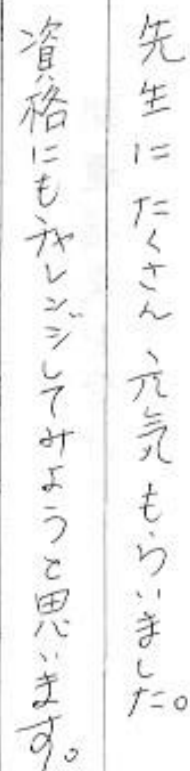 先生にたくさん元気もらいました。
資格にもチャレンジしてみようと思います。